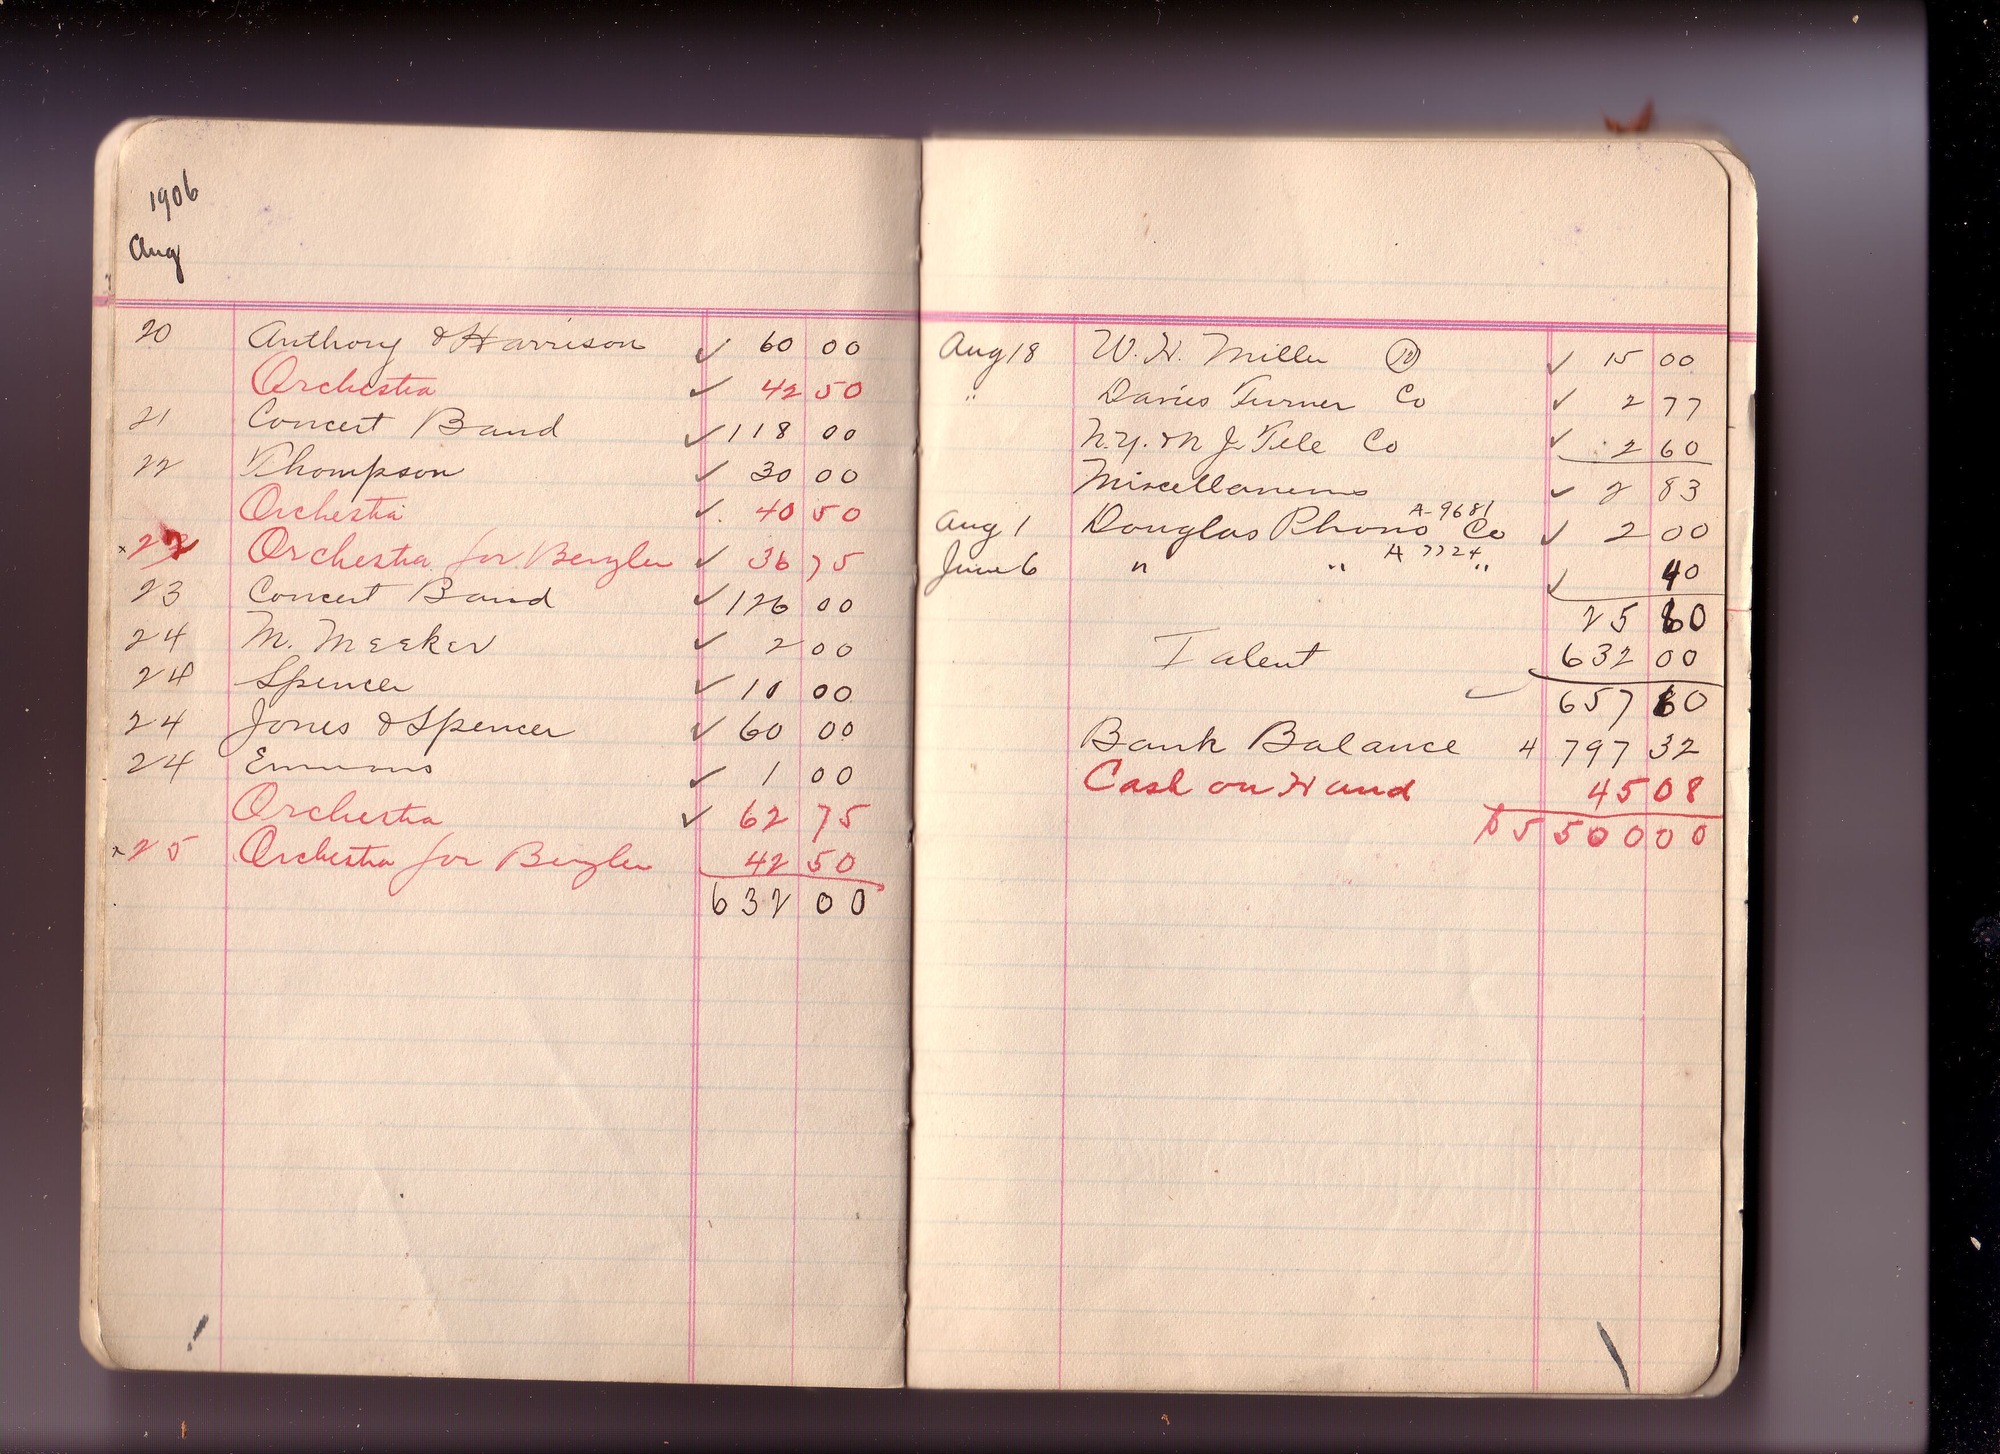 1906
Aug
20 Anthony & Harrison ✓ 60 00
Orchestra ✓ 42 50
21 Concert Band ✓ 118 00
22 Thompson ✓ 30 00
Orchestra ✓ 40 50
x 22 Orchestra for Benzler ✓ 36 75
23 Concert Band ✓ 126 00
24 M. Meeker ✓ 2 00
24 Spencer ✓ 10 00
24 Jones & Spencer ✓ 60 00
24 Emmons ✓ 1 00
Orchestra ✓ 62 75
x 25 Orchestra for Benzler 42 50
632 00
Aug 18 W. H. Miller ✓ 15 00
" Davies Turner Co ✓ 2 77
N.Y. & N J. Tele Co ✓ 2 60
Miscellaneous ✓ 2 83
A-9681
Aug 1 Douglas Phono Co ✓ 2 00
A 7724
June 6 " " " ✓ 40
25 60
Talent 632 00
✓ 657 60
Bank Balance 4 797 32
Cash on Hand 45 08
$5 500 00